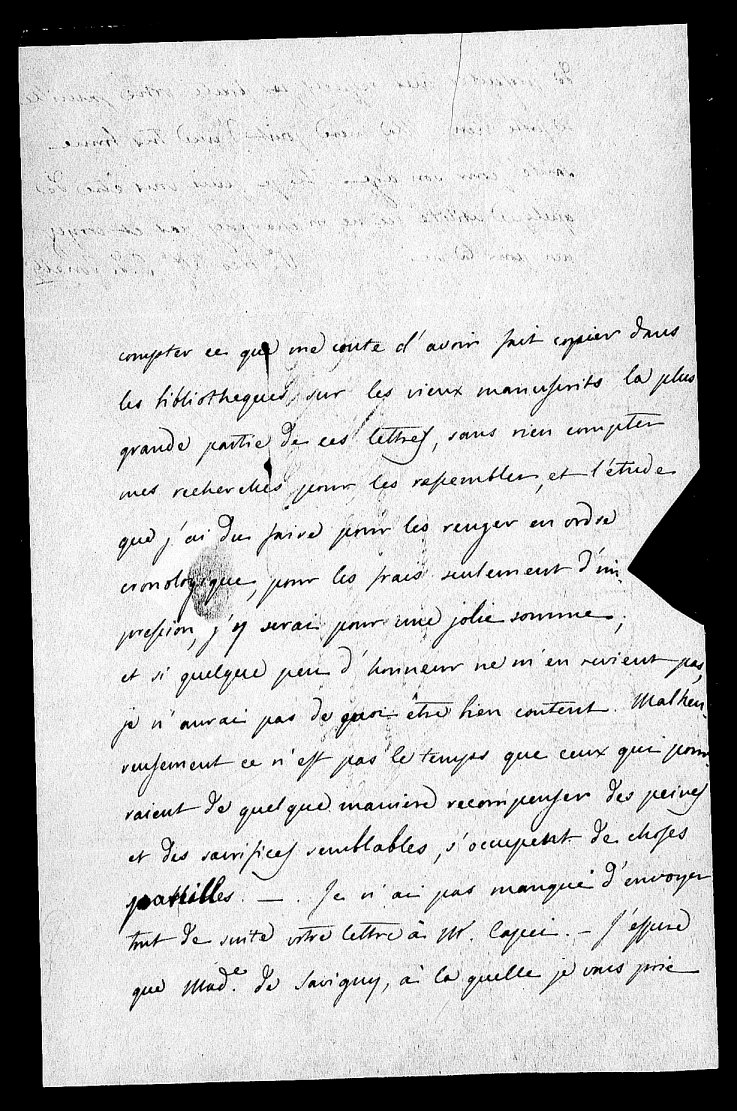 compter ce que me coute d'avoir fait copier dans
les bibliotheques, sur les vieux manuscrits la plus
grande partie de ces lettres, sans rien compter
mes recherches pour les rassembler, et l'étude
que j'ai du faire pour les renger en ordre
cronologique, pour les frais seulement d'im-
pression, j'y serai pour une jolie somme,
et si quelque peu d'honneur ne m'en revient pas,
je n'aurai pas de quoi être bien content. Malheu-
reusement ce n'est pas le temps que ceux qui pour-
raient de quelque maniere recompenser des peines
et des sacrifices semblables, s'occupent de choses
pareilles. — . Je n'ai pas manqué d'envoyer
tout de suite votre lettre à Mr. Capei. — J'espere
que Made. de Savigny, à la quelle je vous prie